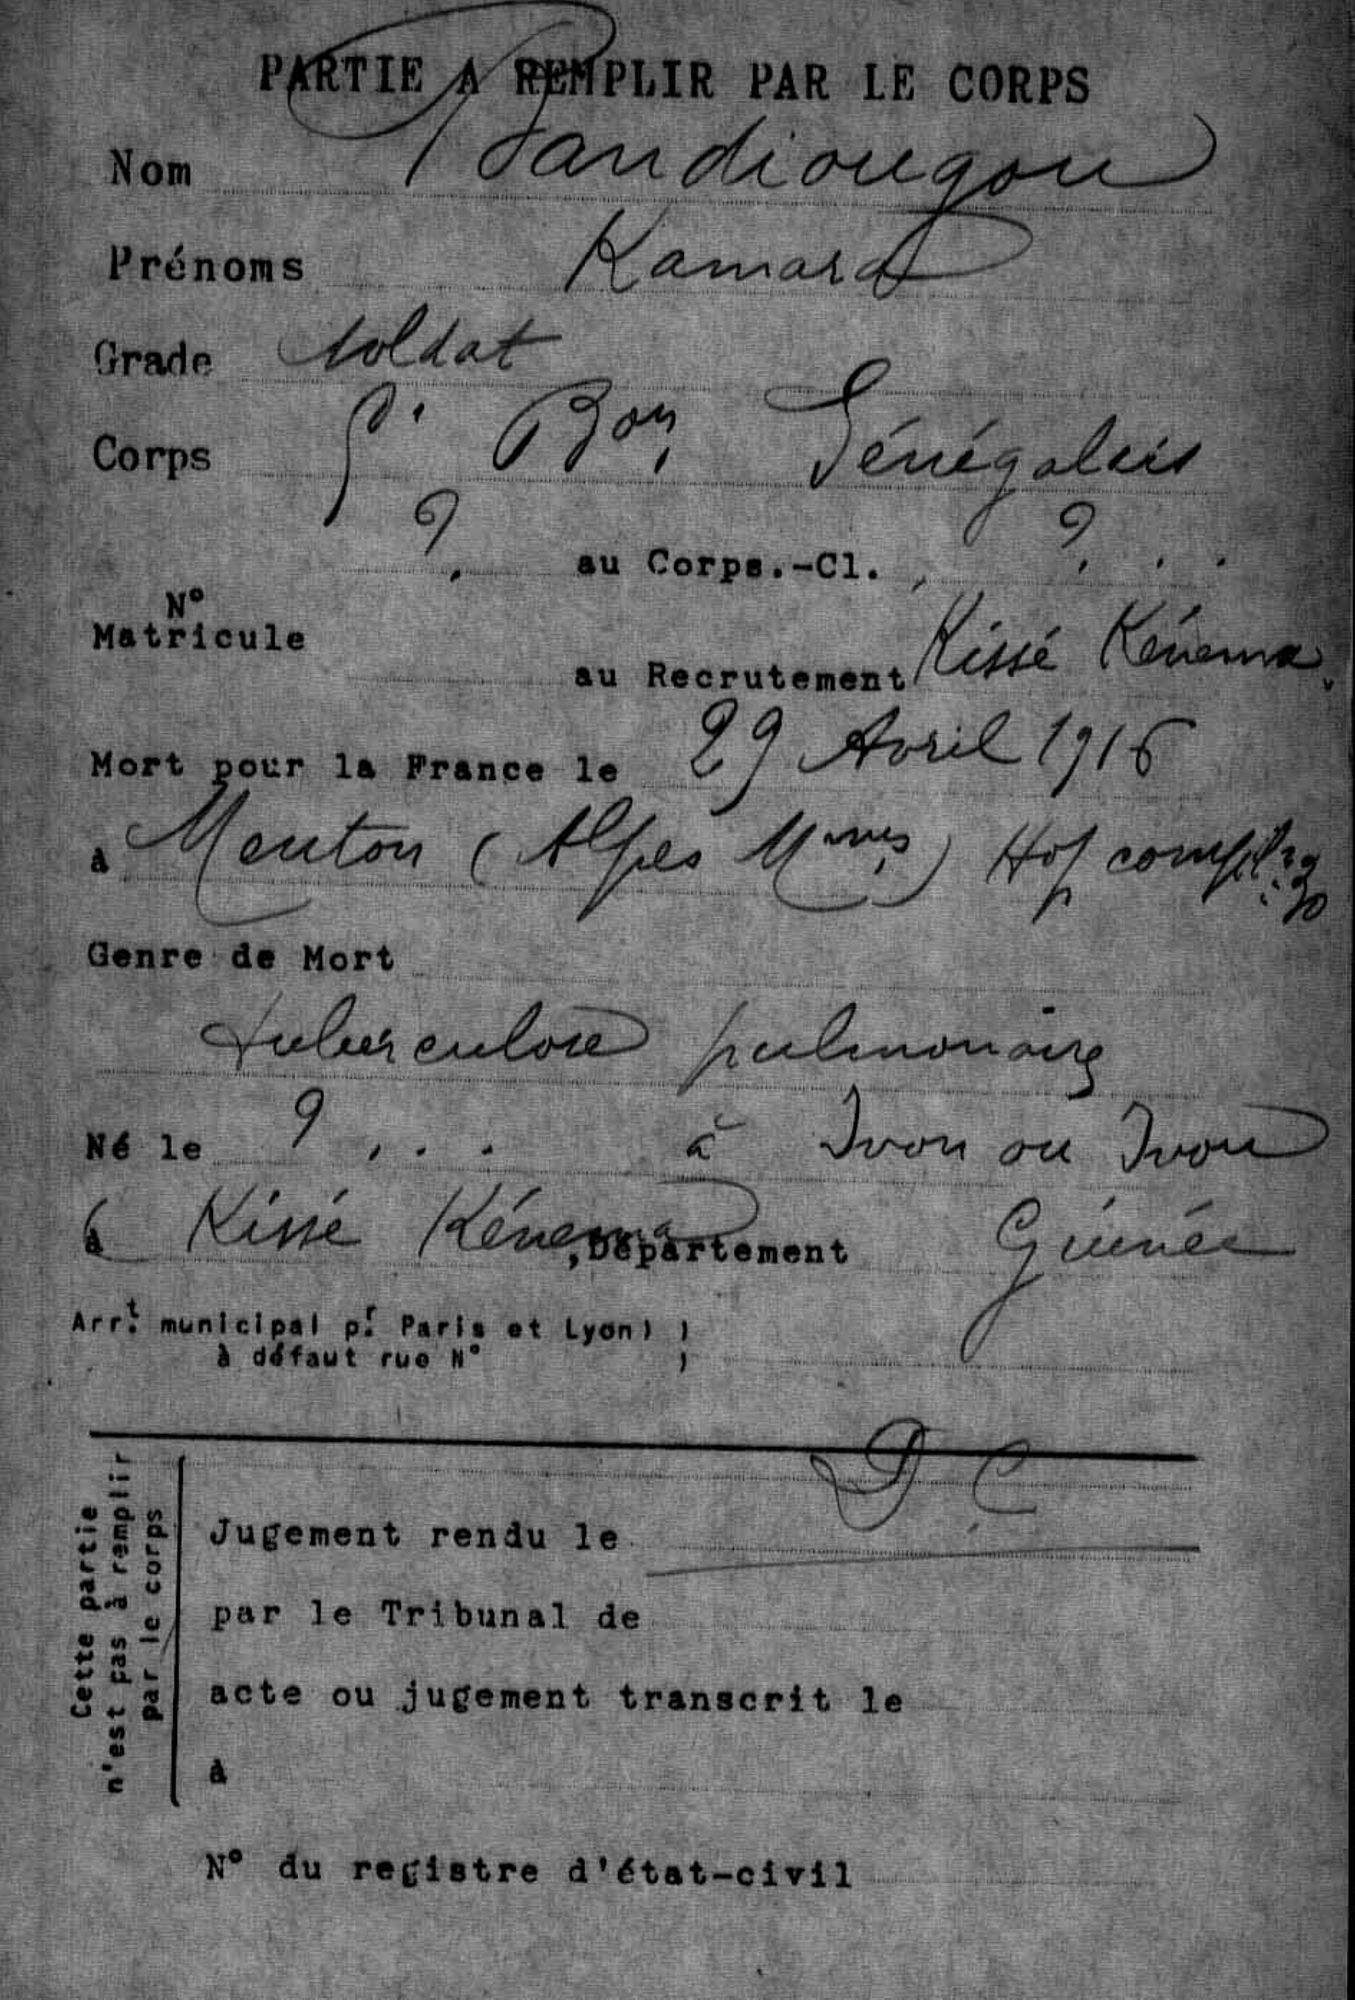 PARTIE A REMPLIR PAR LE CORPS
Nom Bandiougou
Prénoms Kamara
Grade soldat
Corps Bon Sénégalais
? au Corps.-Cl. ?
N°
Matricule
au Recrutement Kissé Kénema
Mort pour la France le 29 Avril 1916
à Menton (Alpes Mmes) Hop compl.
Genre de Mort
tuberculose pulmonaire
Né le ? . . . à Ivon ou Ivou
à Kissé Kénema, Département Guinée
Arr.t municipal p.r Paris et Lyon) )
à défaut rue N° )
D C
Cette partie
n'est pas à remplir
par le corps
Jugement rendu le
par le Tribunal de
acte ou jugement transcrit le
à
N° du registre d'état-civil